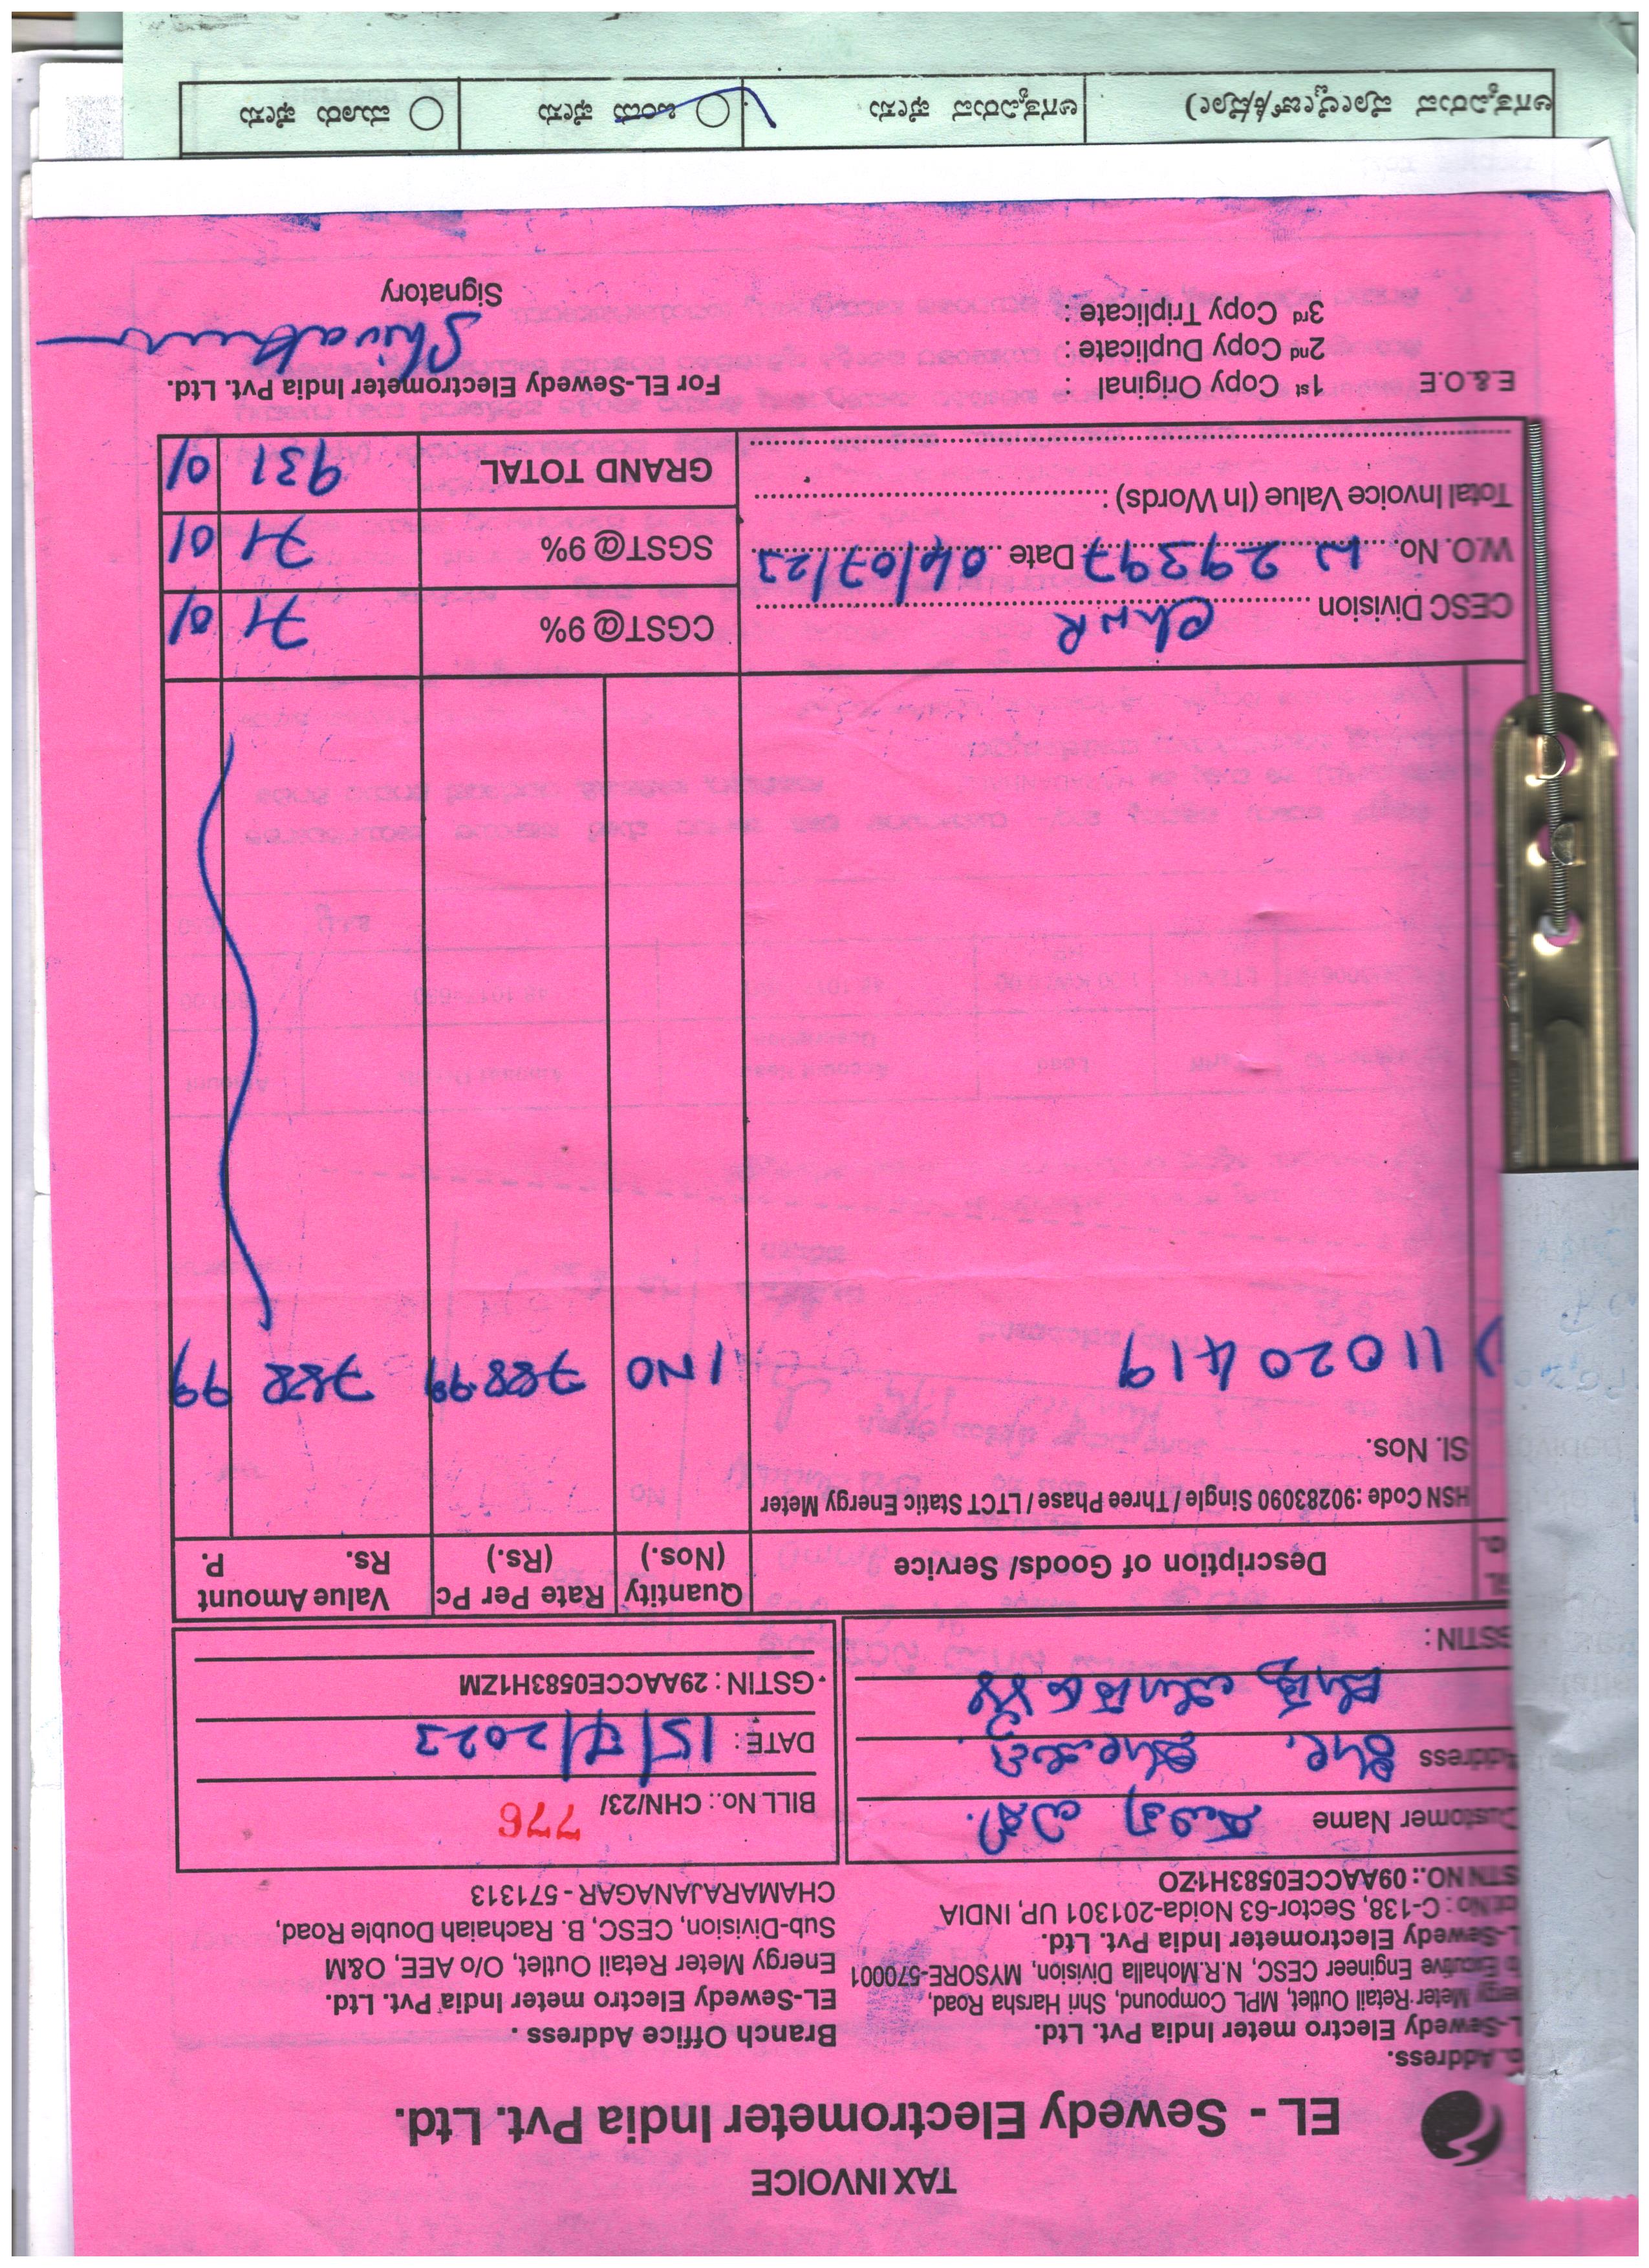 TAX INVOICE
EL - Sewedy Electrometer India Pvt. Ltd.
Address.
L-Sewedy Electro meter India Pvt. Ltd.
Meter Retail Outlet, MPL Compound, Shri Harsha Road,
Executive Engineer CESC, N.R.Mohalla Division, MYSORE-570001
L-Sewedy Electrometer India Pvt. Ltd.
No : C-138, Sector-63 Noida-201301 UP, INDIA
STN NO.: 09AACCE0583H1ZO
Branch Office Address .
EL-Sewedy Electro meter India Pvt. Ltd.
Energy Meter Retail Outlet, O/o AEE, O&M
Sub-Division, CESC, B. Rachaiah Double Road,
CHAMARAJANAGAR - 571313
Customer Name
Address
GSTIN :
BILL No.: CHN/23/ 776
DATE : 15/7/2023
GSTIN : 29AACCE0583H1ZM
Description of Goods/ Service Quantity (Nos.) Rate Per Pc (Rs.) Value Amount Rs. P.
HSN Code : 90283090 Single / Three Phase / LTCT Static Energy Meter
Sl. Nos.
1) 11020419 1 NO 788.99 788 99
CESC Division ChNR CGST@ 9% 71 01
W.O. No W 29397 Date 04/07/23 SGST@ 9% 71 01
Total Invoice Value (In Words) : GRAND TOTAL 931 01
E.& O.E 1st Copy Original : For EL-Sewedy Electrometer India Pvt. Ltd.
2nd Copy Duplicate :
3rd Copy Triplicate : Signatory
ಅಗತ್ಯವಿರುವ ಫೇಸು ಒಂದು ಫೇಸು ಮೂರು ಫೇಸು